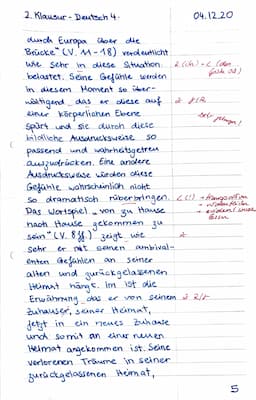 2. Klausur - Deutsch 4. 04.12.20
durch Europa über die
Brücke" (V. 11-18) verdeutlicht
wie sehr in diese Situation
belastet. Seine Gefühle werden
in diesem Moment so über-
wältigend, das er diese auf
einer körperlichen Ebene
spürt und sie durch diese
bildliche Ausdrucksweise so
passend und wahrheitsgetreu
auszudrücken. Eine andere
Ausdrucksweise würden diese
Gefühle wahrscheinlich nicht
so dramatisch rüberbringen.
Das Wortspiel „von zu Hause
nach Hause gekommen zu
sein" (V. 8ff.) zeigt wie
sehr er mit seinen ambival-
enten Gefühlen an seiner
alten und zurückgelassenen
Heimat hängt. Im ist die
Erwähnung, das er von seinem
Zuhauser, seiner Heimat,
jetzt in ein neues Zuhause
und somit an einer neuen
Heimat angekommen ist. Seine
verlorenen Träume in seiner
zurückgelassenen Heimat,
5